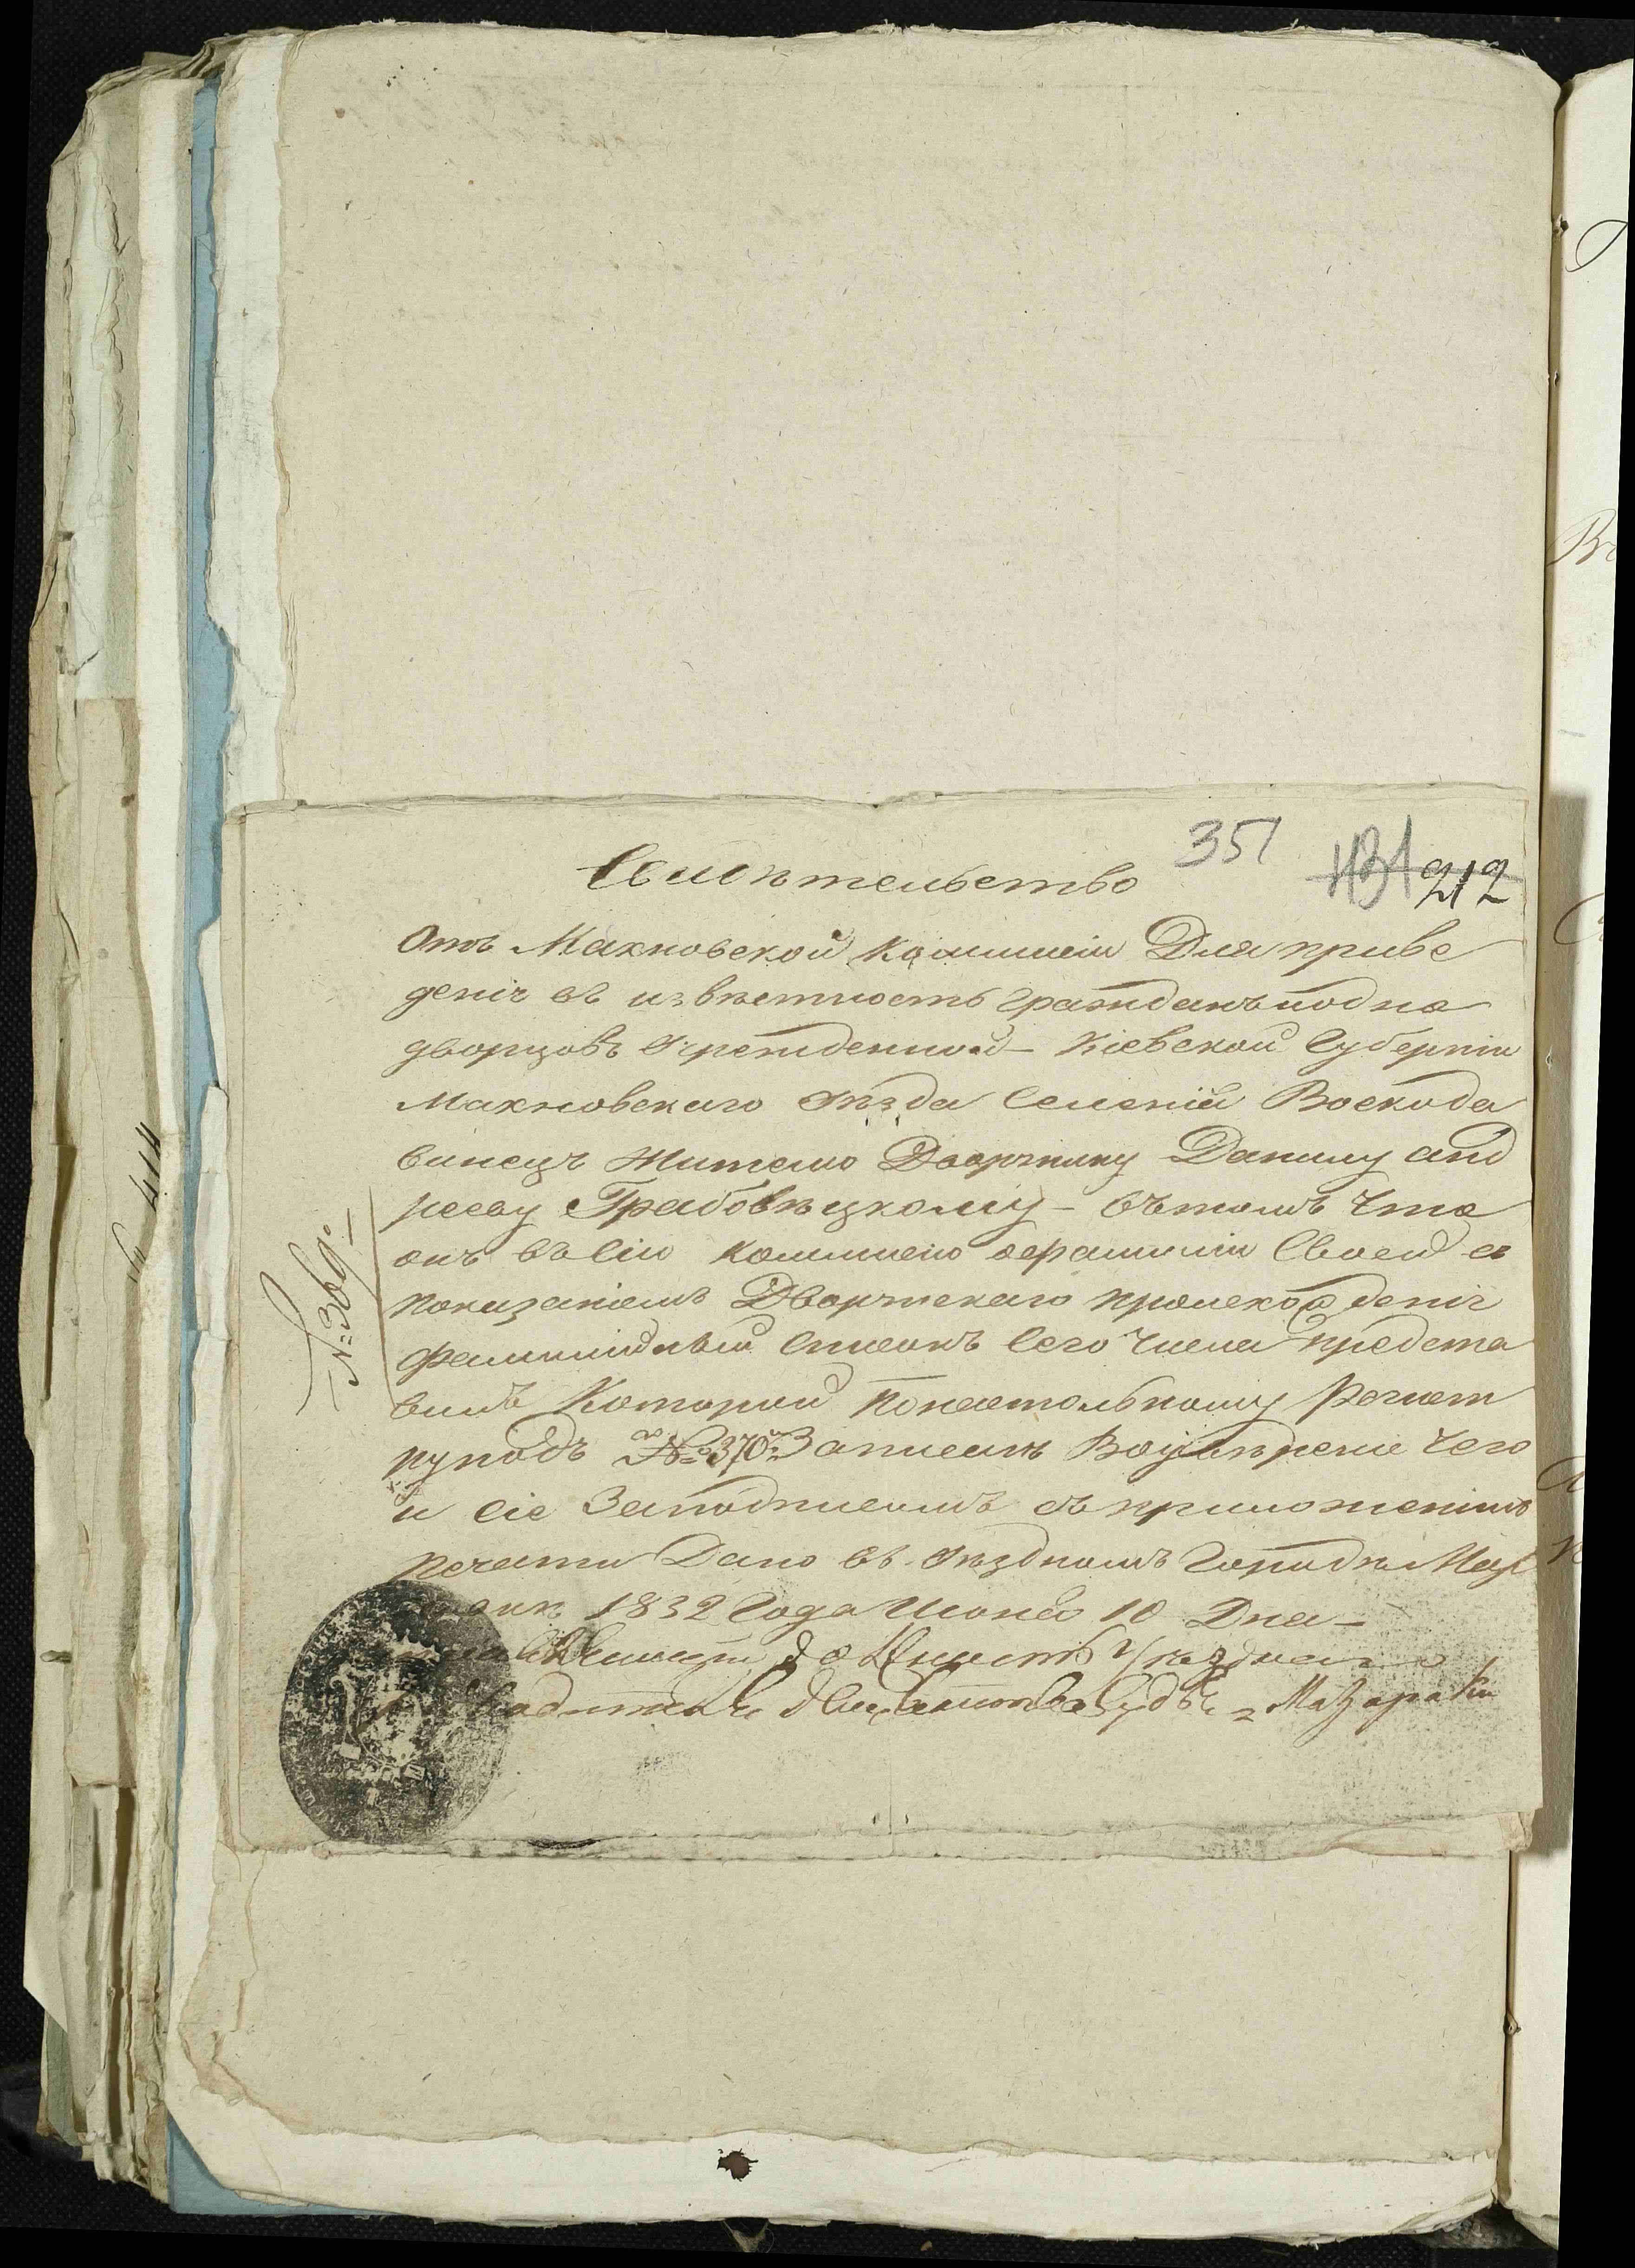 351 431 212
Свидѣтельство
Отъ Махновской Коммисіи Для приве
денія въ извѣстность гражданъ и одно
дворцовъ Учрежденной – Кіевской Губерніи
Махновскаго Уѣзда Селенія Воскода
винецъ Жителю Дворянину Данилу Анд
рееву Грабовѣцкому – въ томъ что
онъ въ Сію Коммисію о фамиліи Своей съ
показаніемъ Дворянскаго происхожденія
Фамилійный списокъ Сего Числа предста
вилъ Которой По настольному Регист
ру подъ № 370 Записанъ Во увѣреніе чего
и сіе За подписомъ съ приложеніемъ
печати Дано въ Уѣздномъ Городѣ Мах
новкѣ 1832 Года Июня 10 Дня –
Уѣзднаго
Мазараки
№ 369
414